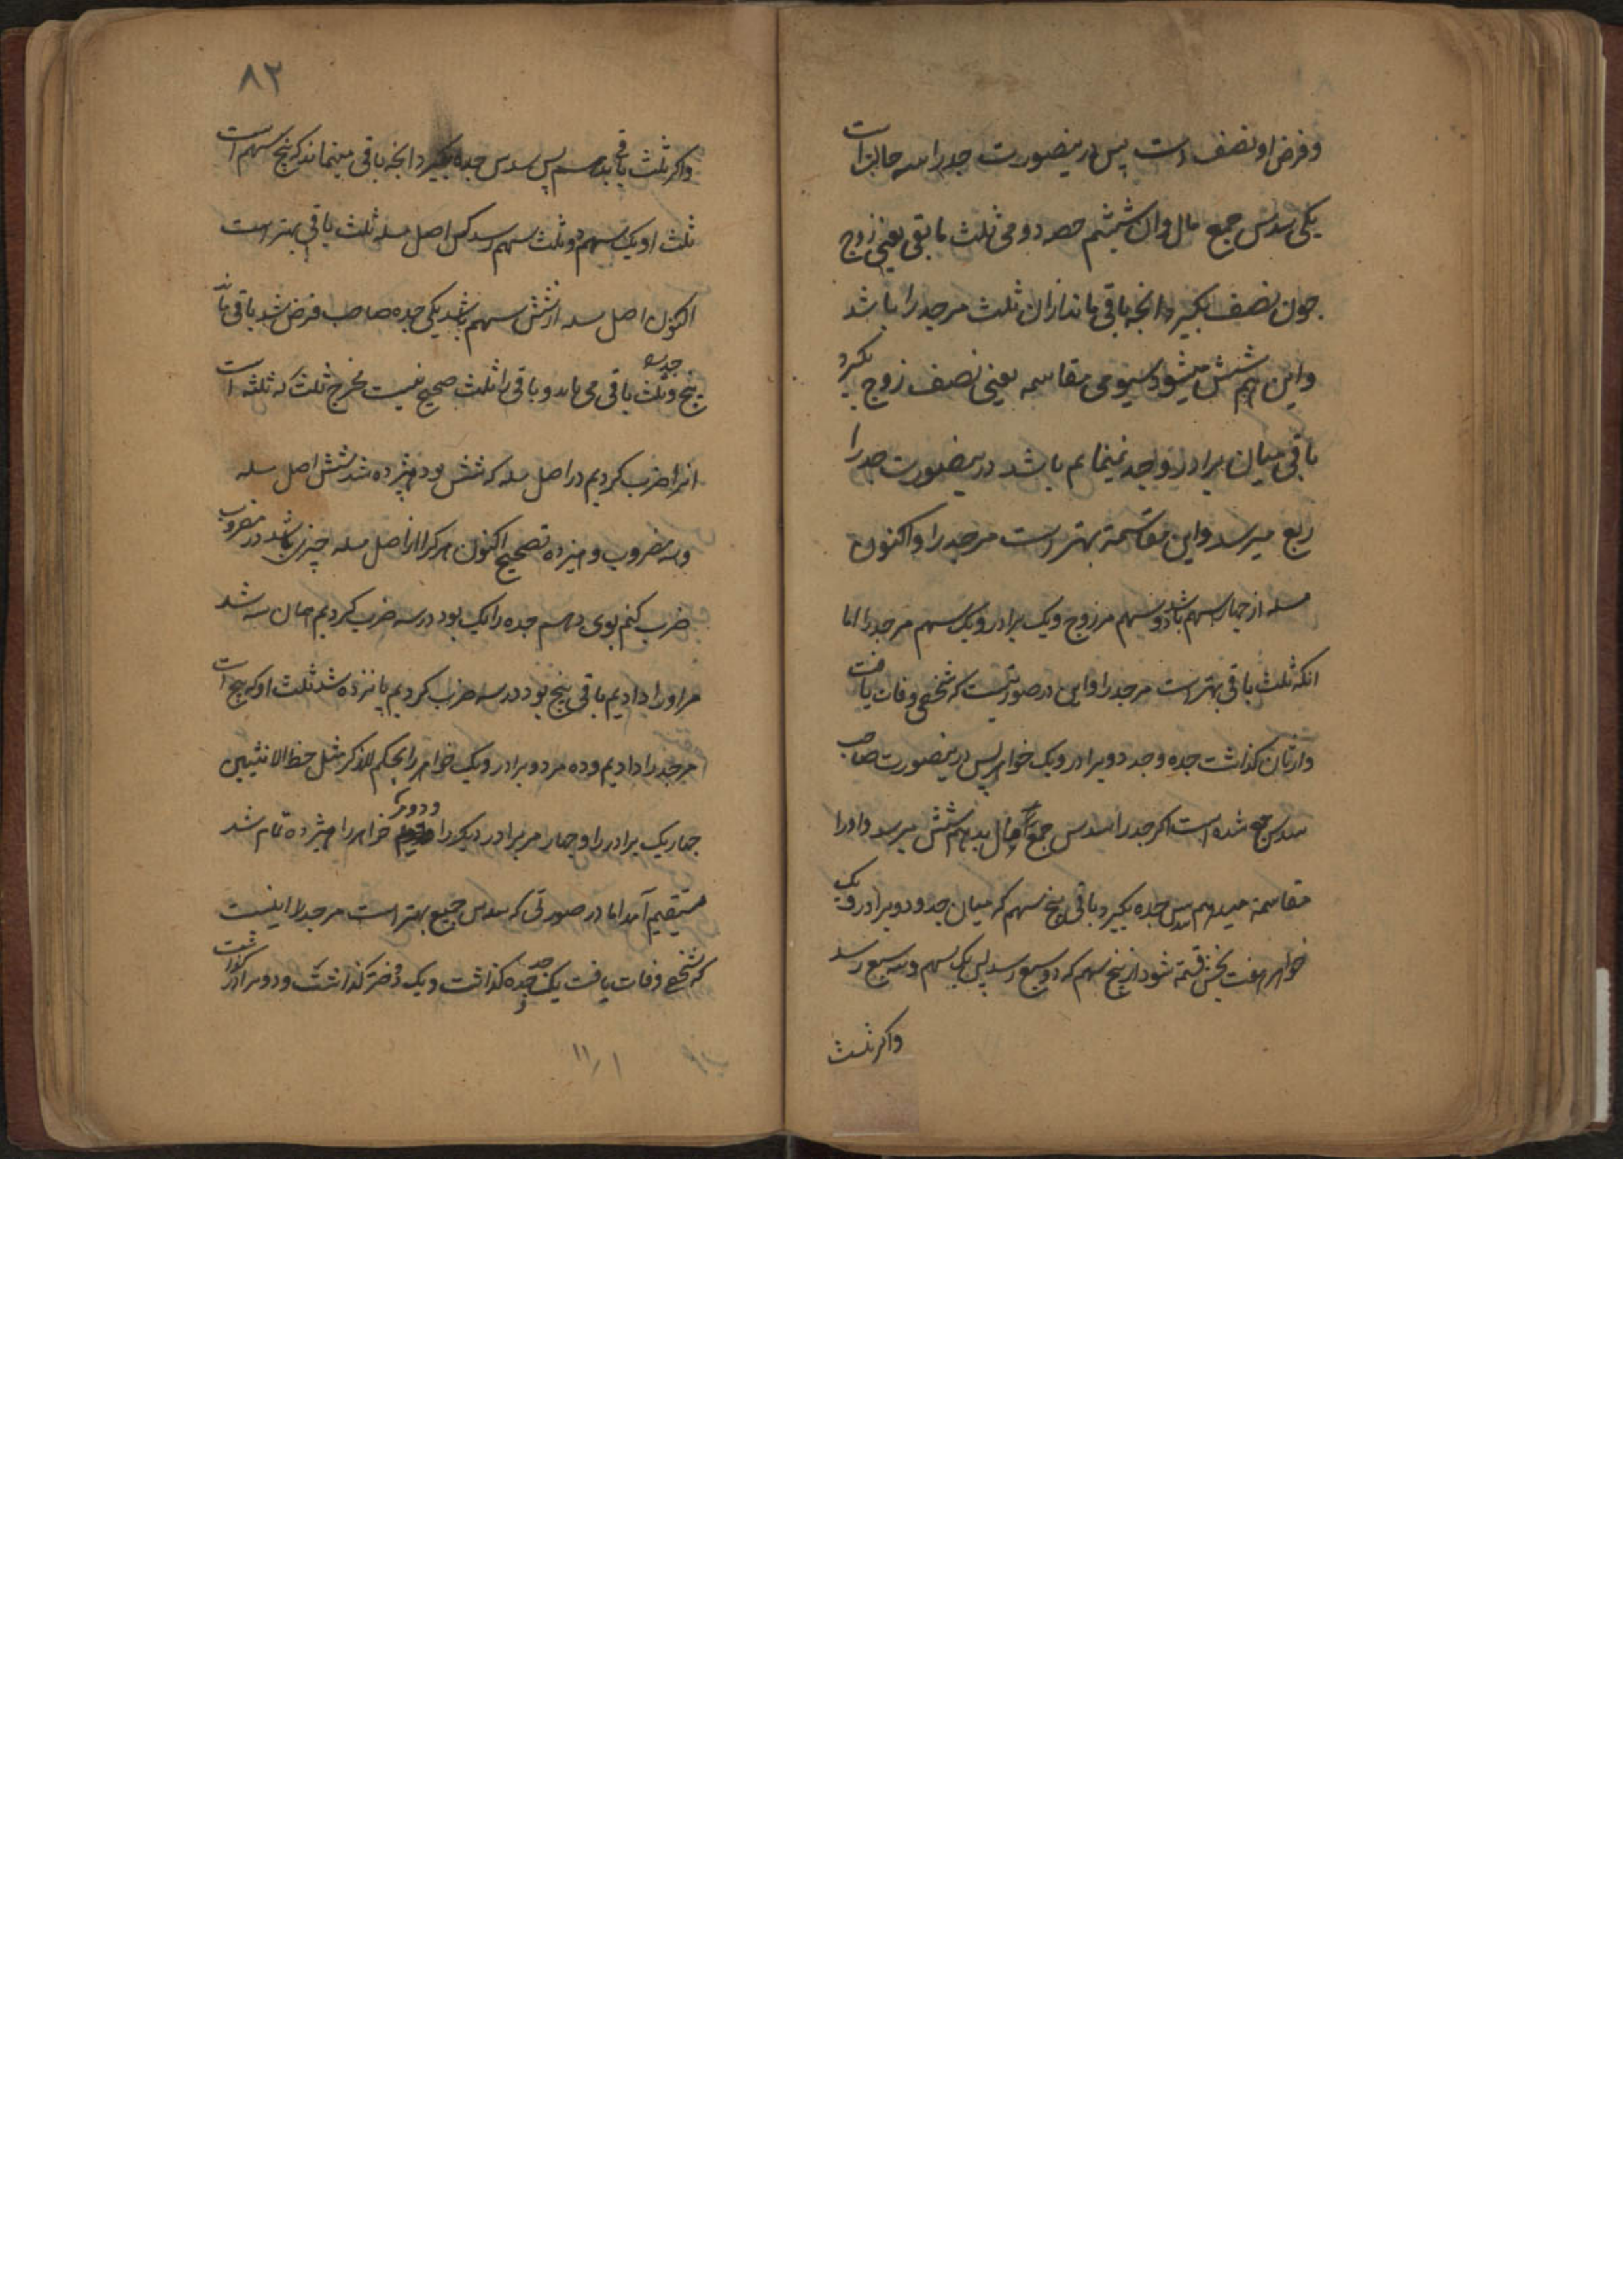 وفرض او نصف است پس درینصورت جد را سه حالتست
یکی سدس جمیع مال وان ششم حصه دومی ثلث ما بقی یعنی زوج
چون نصف بگیرد انچه باقی ماند ازان ثلث مر جد را باشد
واین هم شش میشود سیومی مقاسمه یعنی نصف زوج بگیرد
باقی میان برادر و جد باشد درینصورت جد را
ربع میرسد واین مقاسمة بهتر است مر جد را واکنون
مسله از چهار سهم باشد دو سهم مر زوج ویک برادر ویک سهم مر جد را اما
انکه ثلث باقی بهتر است مر جد را واین در صورتیست که شخصی وفات یافت
وارثان گذاشت جده وجد دو برادر ویک خواهر پس درینصورت صاحب
سدس جده شده است اگر جد را سدس جمیع مال بدهم شش میرسد واورا
مقاسمة میدهم سدس جده بگیرد باقی پنج سهم که میان جد ودو برادر ویک
خواهر هفت بخش قسمة شود از پنج سهم که دو سبع رسد پس یک سهم وسه سبع رسد
واگر ثلث
۸۲
واگر ثلث باقی بدهم پس سدس جده بگیرد انچه باقی میماند که پنج سهم است
ثلث او یک سهم دو ثلث سهم رسد اصل مسله ثلث باقی بهتر است
اکنون اصل مسله از شش سهم باشد یکی جده صاحب فرض شد باقی ماند
پنج وثلث باقی می باید و باقی را ثلث صحیح نیست مخرج ثلث که ثلثه است
انرا ضرب کردیم در اصل مسله که شش بود هیژده شد شش اصل مسله
وسه مضروب وهیژده تصحیح اکنون هر کرا از اصل مسله چیزی باشد در مضروب
ضرب کنم بوی دهم جده را یک بود در سه ضرب کردیم همان سه شد
مر اورا دادیم باقی پنج بود در سه ضرب کردیم پانزده شد ثلث او که پنج است
مر جد را دادیم وده مر دو برادر ویک خواهر را بحکم للذکر مثل حظ الانثیین
چهار یک برادر را وچهار مر برادر دیگر را ودو مر خواهر را هیژده تمام شد
مستقیم آمد اما در صورتی که سدس جمیع بهتر است مر جد را اینست
که شخصی وفات یافت یک جد و جده گذاشت ویک دختر گذاشت ودو برادر گذاشت